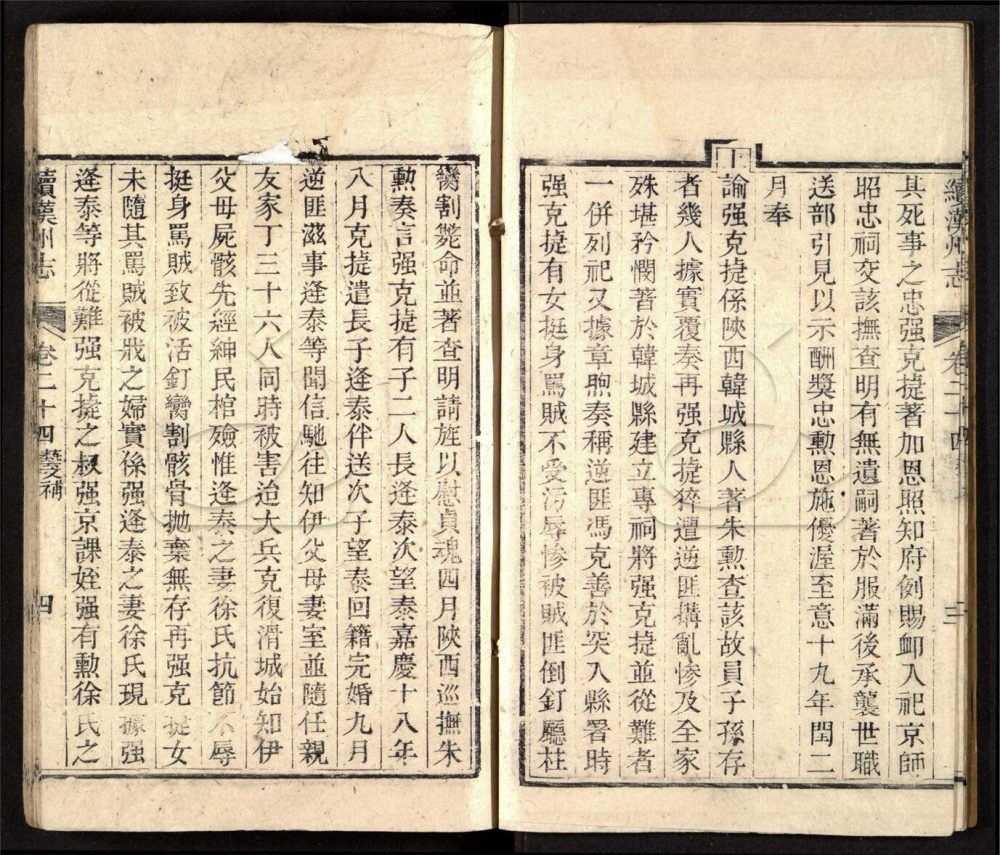 續漢州志 卷二十四 三
其死事之忠强克捷著加恩照知府例賜卹入祀京師
昭忠祠交該撫查明有無遺嗣著於服滿後承襲世職
送部引見以示酬獎忠勲恩施優渥至意十九年閏二
月奉
上
諭强克捷係陝西韓城縣人著朱勲查該故員子孫存
者幾人據實覆奏再强克捷猝遭逆匪搆亂慘及全家
殊堪矜憫著於韓城縣建立專祠將强克捷並從難者
一併列祀又據章煦奏稱逆匪馮克善於突入縣署時
强克捷有女挺身罵賊不受污辱慘被賊匪倒釘廳柱
臠割斃命並著查明請旌以慰貞魂四月陝西巡撫朱
勲奏言强克捷有子二人長逢泰次望泰嘉慶十八年
八月克捷遣長子逢泰伴送次子望泰回籍完婚九月
逆匪滋事逢泰等聞信馳往知伊父母妻室並隨任親
友家丁三十六人同時被害迨大兵克復滑城始知伊
父母屍骸先經紳民棺殮惟逢泰之妻徐氏抗節不辱
挺身罵賊致被活釘臠割骸骨拋棄無存再强克捷女
未隨其罵賊被戕之婦實係强逢泰之妻徐氏現據强
逢泰等將從難强克捷之叔强京課姪强有勲徐氏之
續漢州志 卷二十四藝文補 四